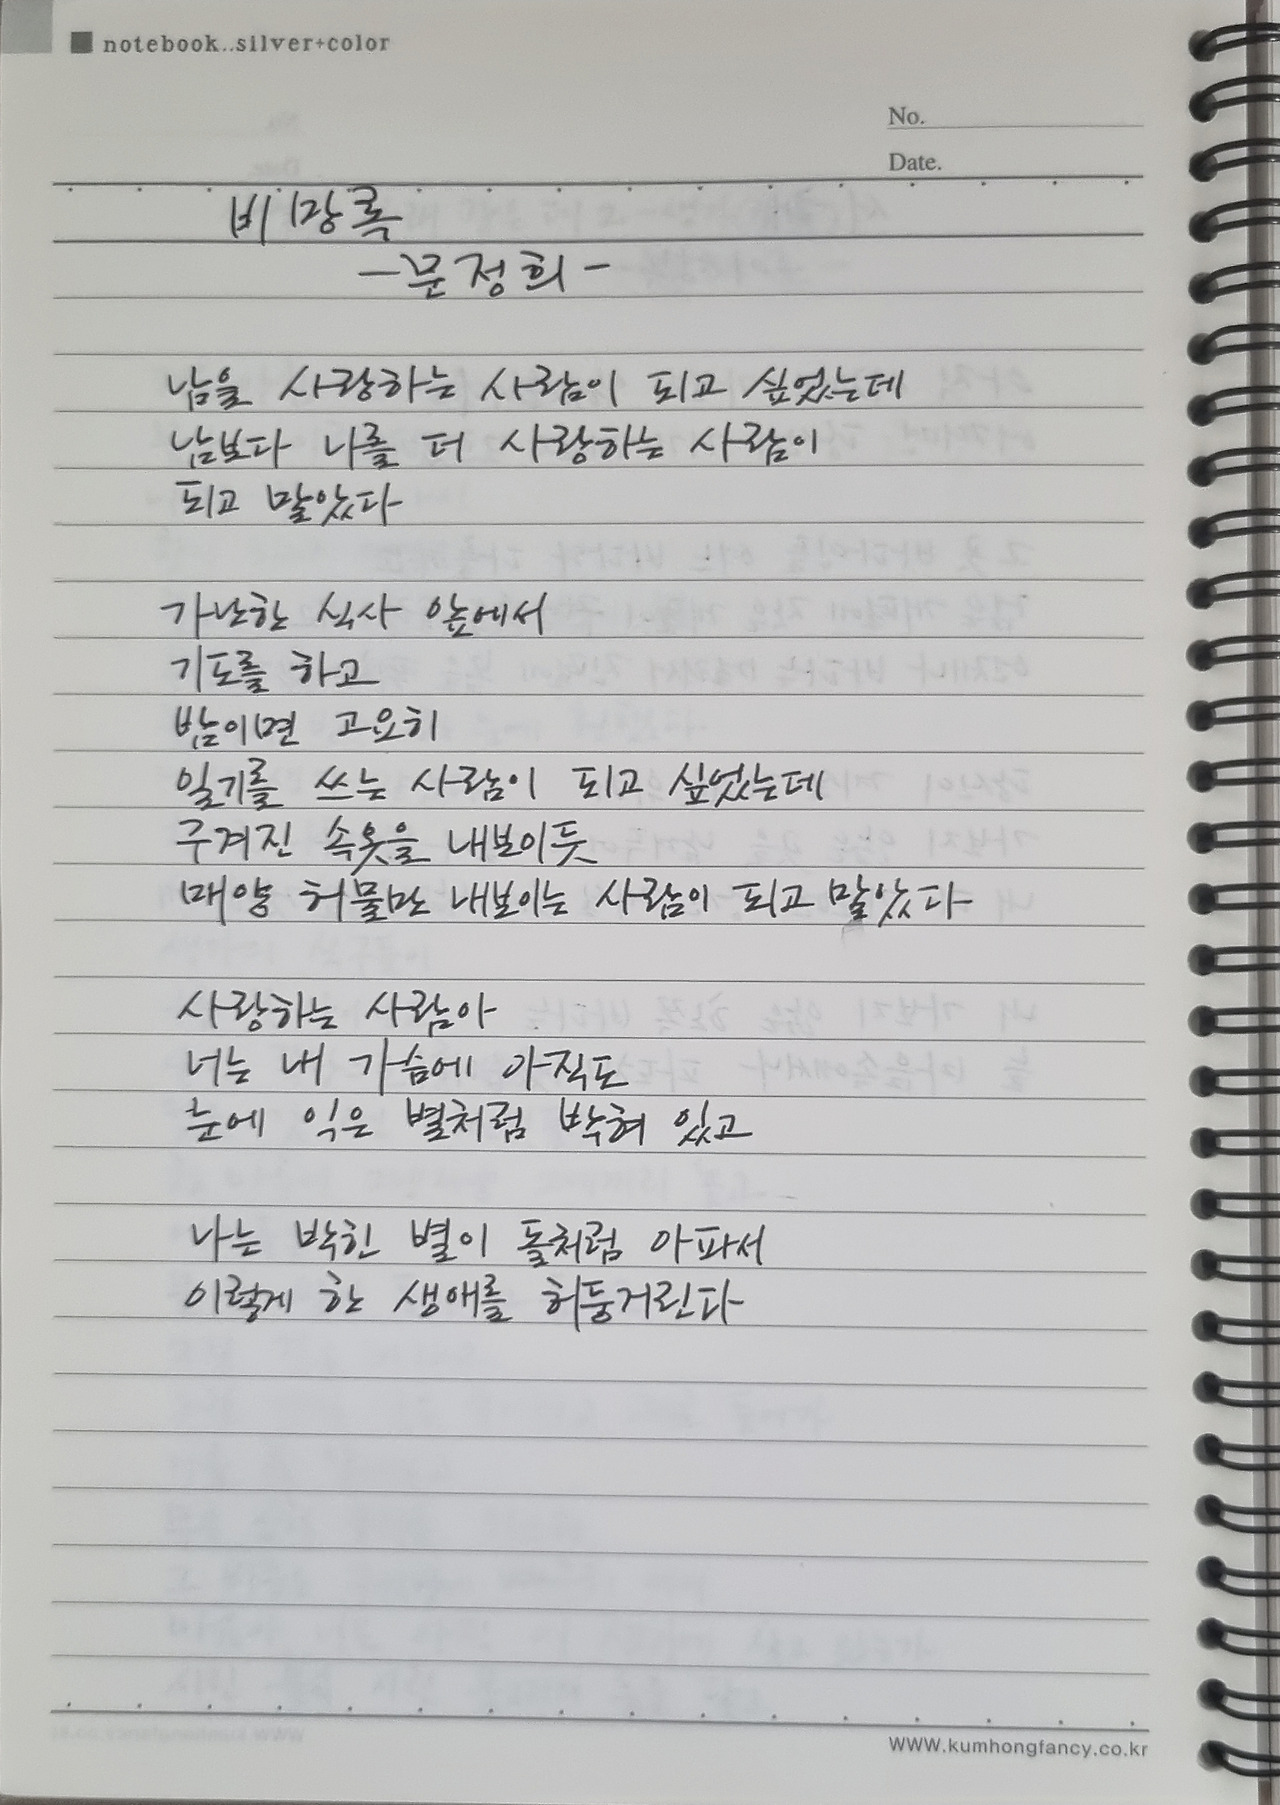 notebook..silver+color
No.
Date.
비망록
-문정희-
남을 사랑하는 사람이 되고 싶었는데
남보다 나를 더 사랑하는 사람이
되고 말았다
가난한 식사 앞에서
기도를 하고
밤이면 고요히
일기를 쓰는 사람이 되고 싶었는데
구겨진 속옷을 내보이듯
매양 허물만 내보이는 사람이 되고 말았다
사랑하는 사람아
너는 내 가슴에 아직도
눈에 익은 별처럼 박혀 있고
나는 박힌 별이 돌처럼 아파서
이렇게 한 생애를 허둥거린다
WWW.kumhongfancy.co.kr